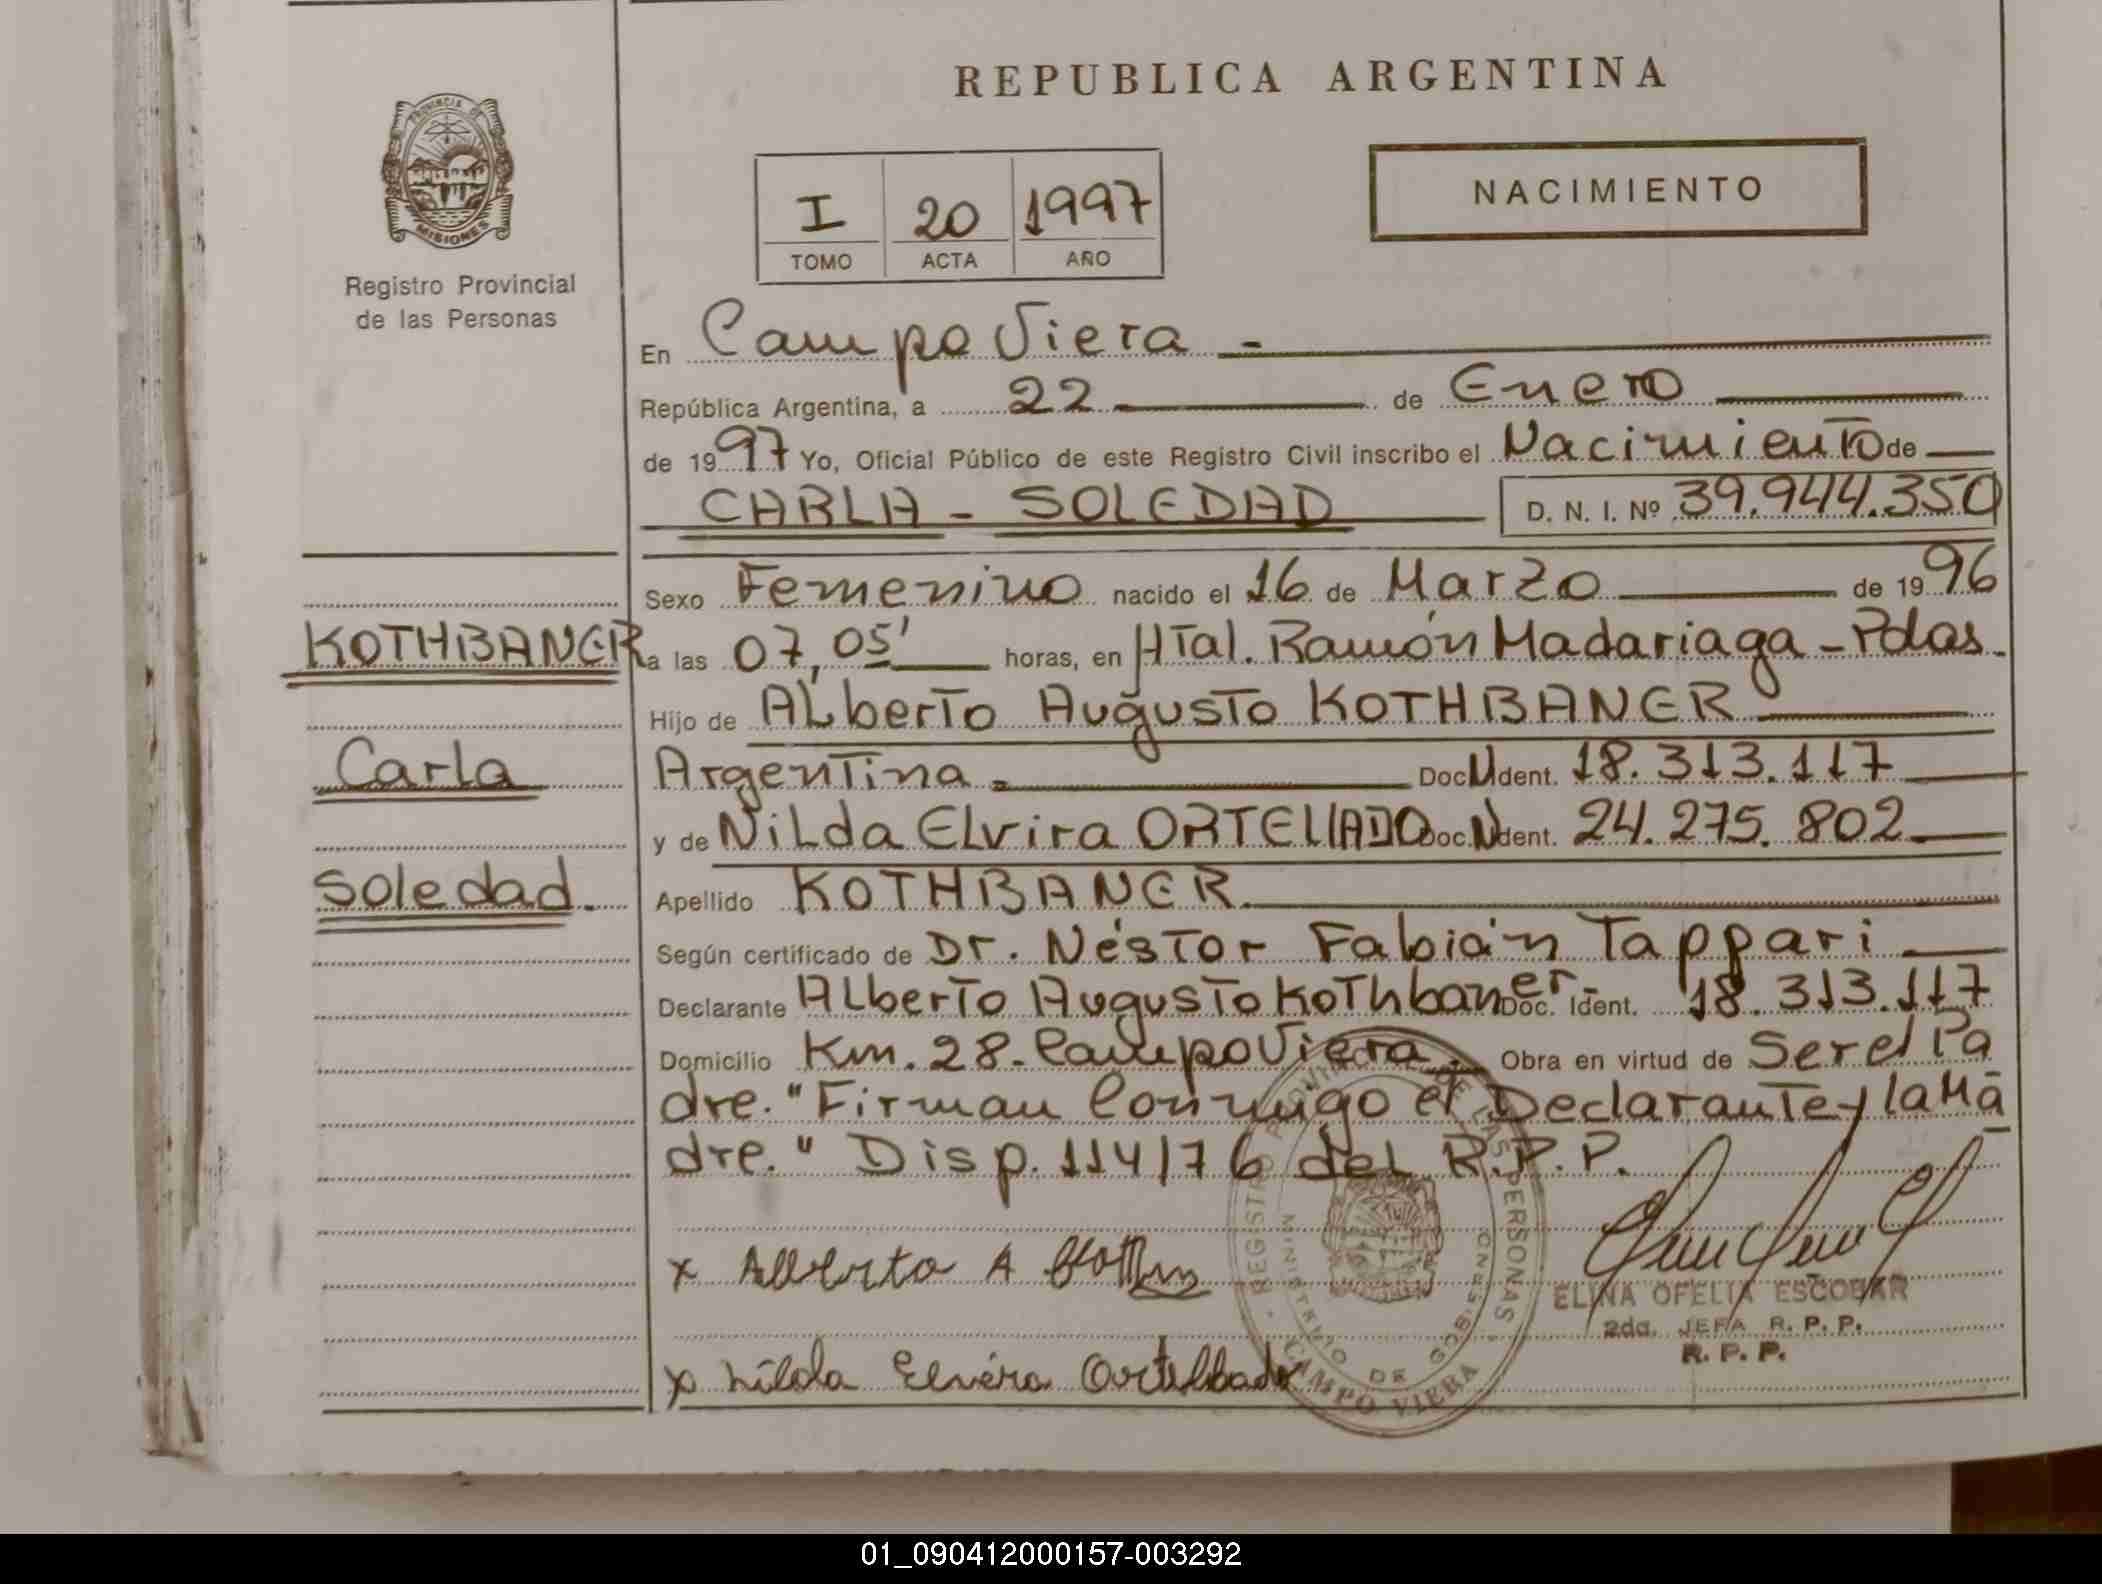 REPUBLICA ARGENTINA
PROVINCIA DE MISIONES
Registro Provincial
de las Personas
I 20 1997
TOMO ACTA AÑO
NACIMIENTO
En Campo Viera -
República Argentina, a 22 de Enero
de 1997 Yo, Oficial Público de este Registro Civil inscribo el Nacimiento de
CARLA - SOLEDAD D. N. I. Nº 39.944.350
Sexo Femenino nacido el 16 de Marzo de 1996
KOTHBANER
a las 07,05' horas, en Htal. Ramón Madariaga - Pdas.
Hijo de ALberto Augusto KOTHBANER
Carla
Argentina. Doc. Ident. 18.313.117
y de NiLda ELvira ORTELLADO Doc. Ident. 24.275.802
Soledad.
Apellido KOTHBANER.
Según certificado de Dr. Néstor Fabián Tappari
Declarante ALberto Augusto Kothbaner Doc. Ident. 18.313.117
Domicilio Km. 28 - Campo Viera. Obra en virtud de Ser el Pa
dre. "Firman Conmigo el Declarante y la Ma
dre." Disp. 114/76 del R.P.P.
x Alberto A
x Nilda Elvira Ortellado
REGISTRO PROVINCIAL DE LAS PERSONAS
MINISTERIO DE GOBIERNO
CAMPO VIERA
ELINA OFELIA ESCOBAR
2da. JEFA R. P. P.
R. P. P.
01_090412000157-003292